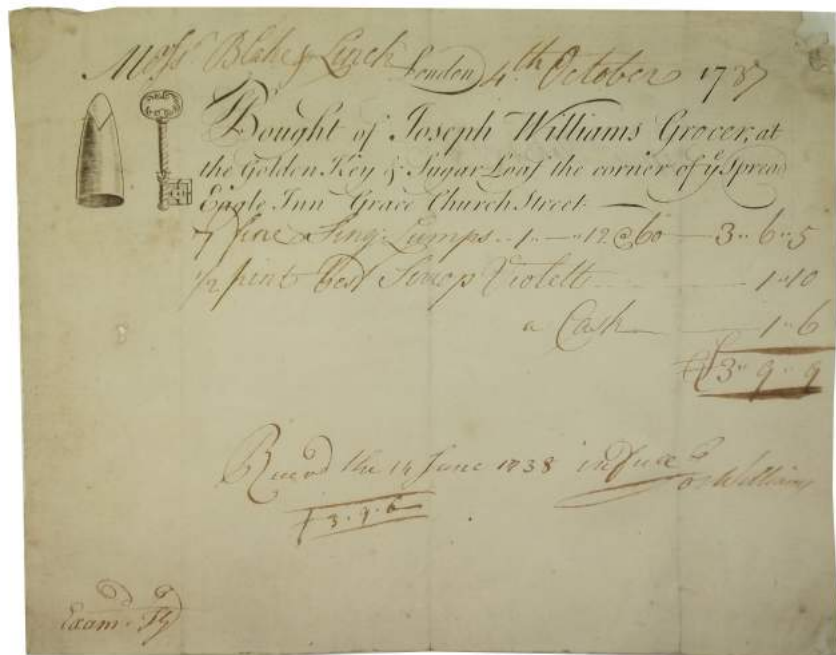 Messrs Blake & Linch London 4th October 1737
Bought of Joseph Williams Grocer, at
the Golden Key & Sugar Loaf the corner of ye Spread
Eagle Inn Grace Church Street
7 fine Sing: Lumps .. 1 .. — .. 12 @ 60 — 3 .. 6 .. 5
1/2 pint Best Sirrop Violett — 1 .. 10
a Cash — 1 .. 6
£3 .. 9 .. 9
Recd the 14 June 1738 in full
Williams
£3 . 9 . 6
Examd